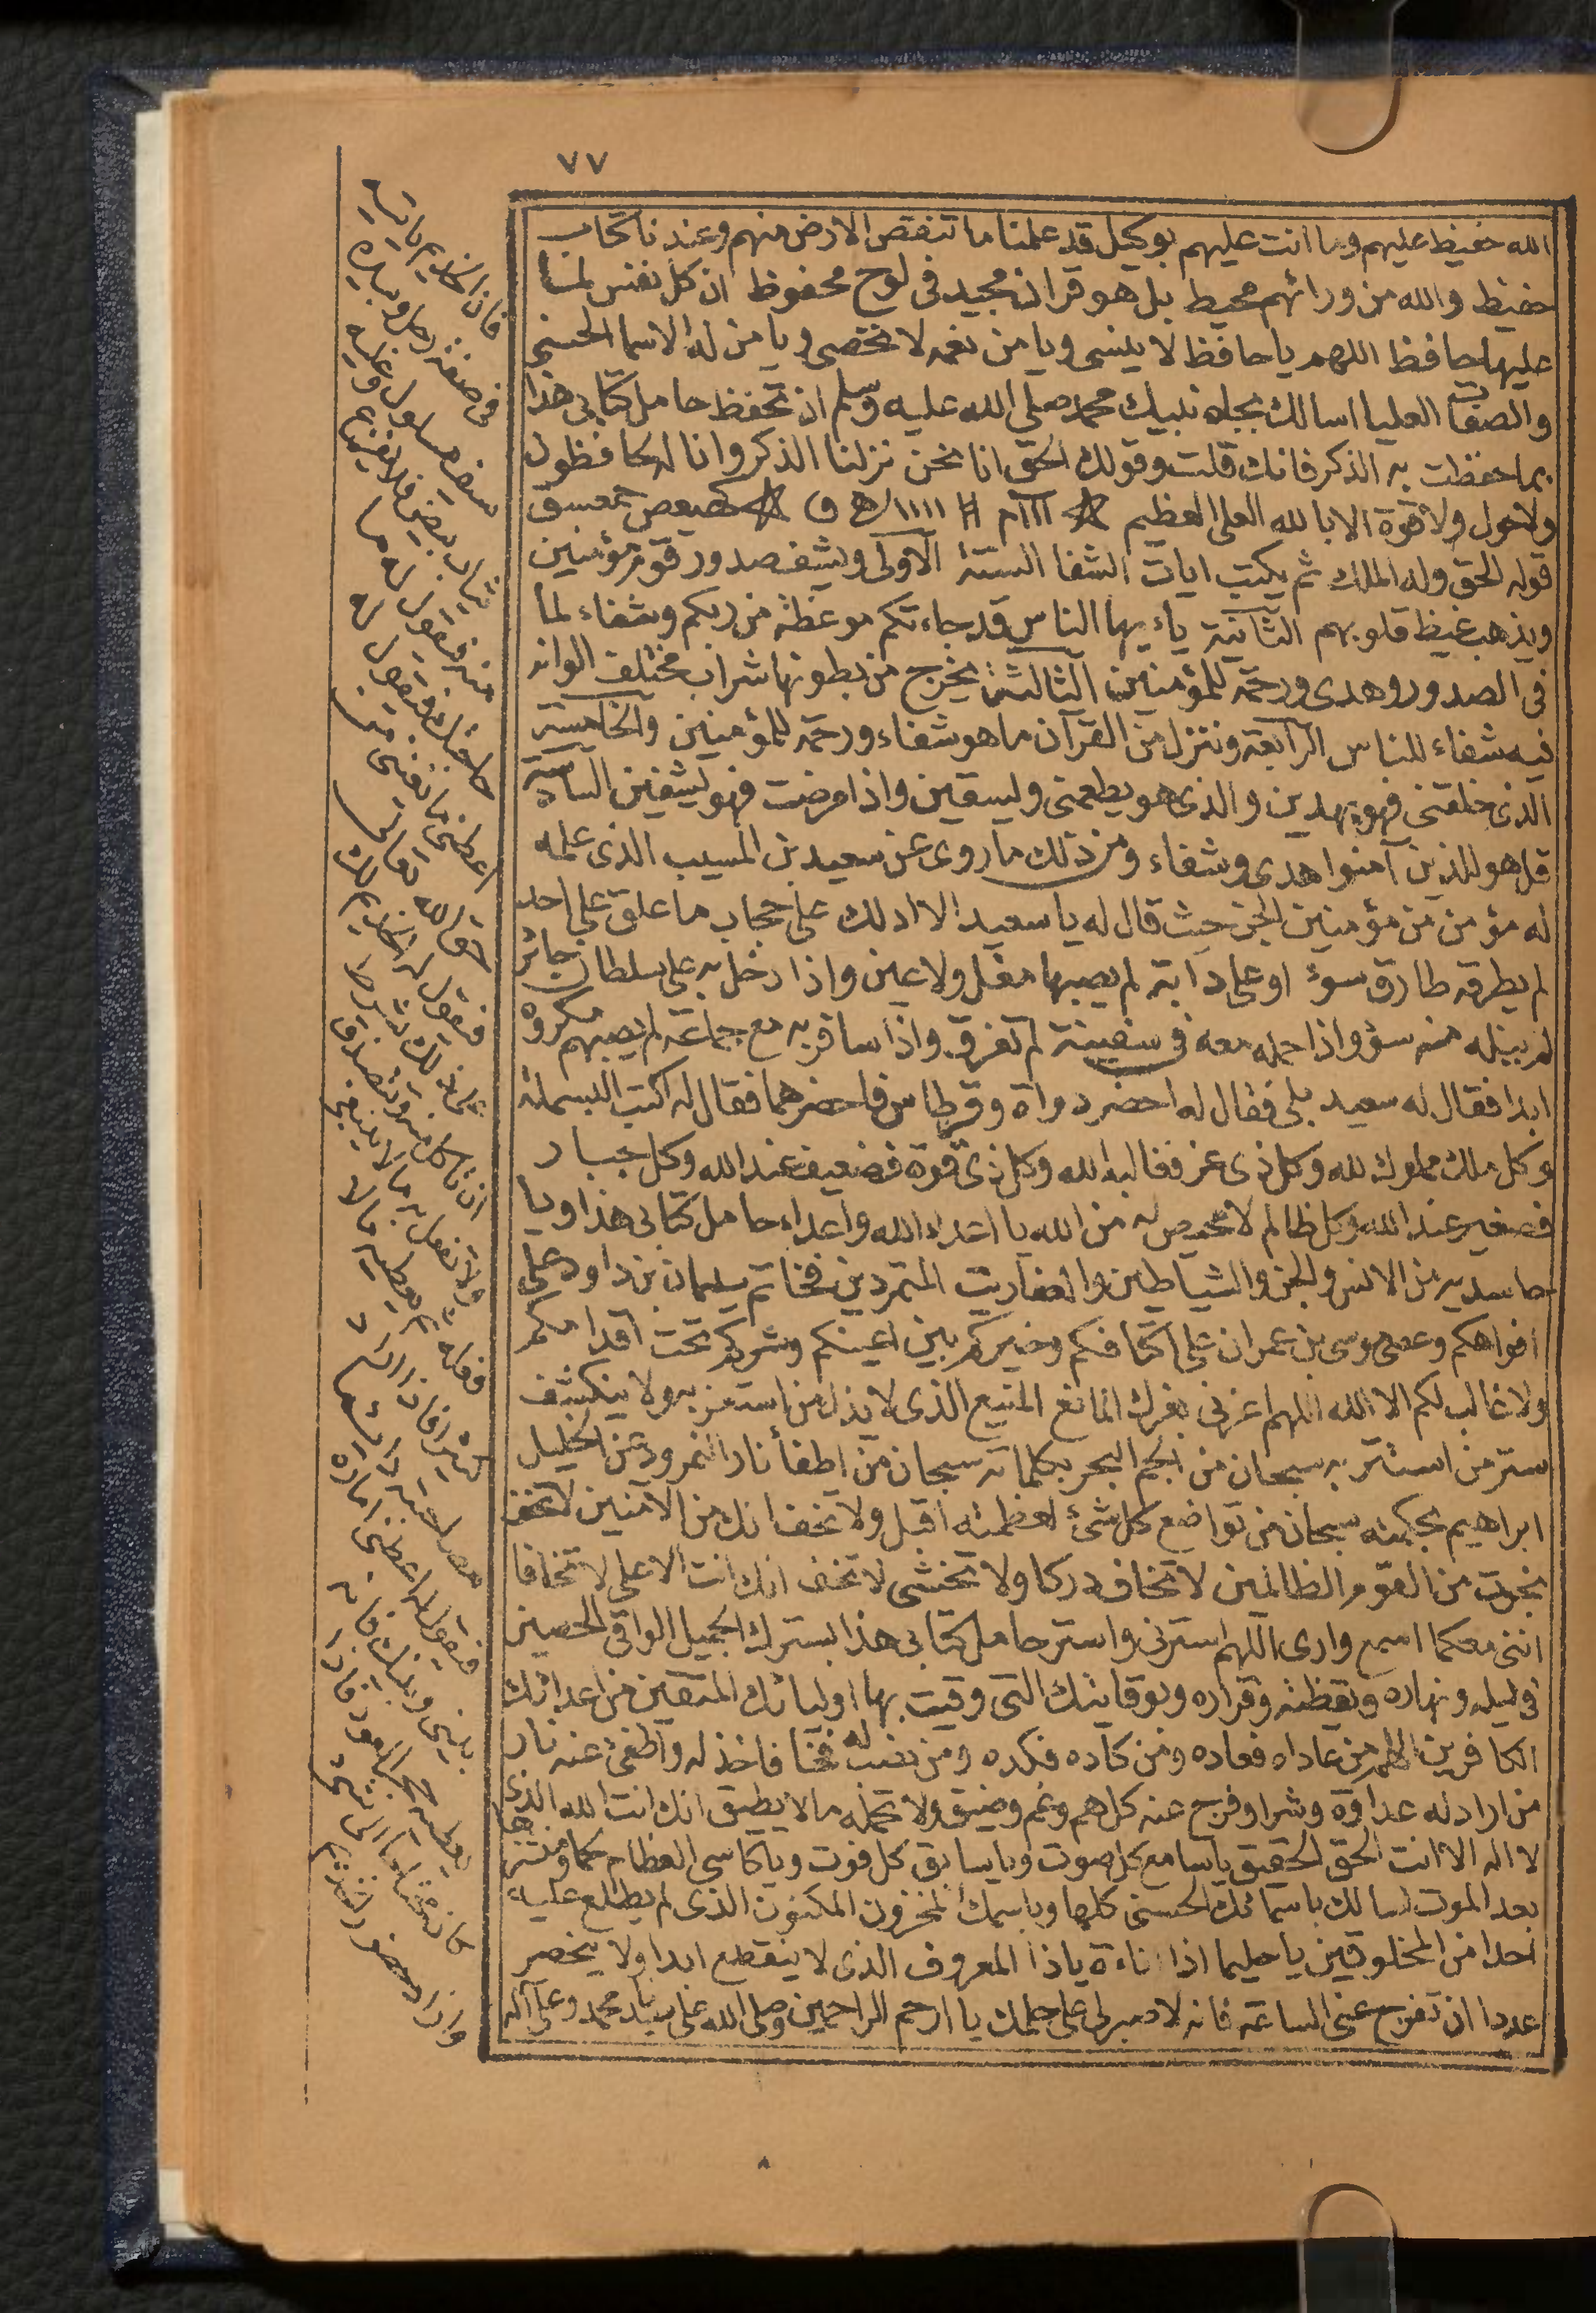 ٧٧
الله حفيظ عليهم وما انت عليهم بوكيل قد علمنا ما تنقص الارض منهم وعندنا كتاب
حفيظ والله من ورائهم محيط بل هو قران مجيد في لوح محفوظ ان كل نفس لما
عليها حافظ اللهم يا حافظ لا ينسى ويا من نعمه لا تحصى ويا من له الاسما الحسنى
والصفات العليا اسالك بجاه نبيك محمد صلى الله عليه وسلم ان تحفظ حامل كتابي هذا
بما حفظت به الذكر فانك قلت وقولك الحق انا نحن نزلنا الذكر وانا له لحافظون
ولا حول ولا قوة الا بالله العلي العظيم كهيعص حمعسق
قوله الحق وله الملك ثم يكتب ايات الشفا الستة الاولى ويشف صدور قوم مؤمنين
ويذهب غيظ قلوبهم الثانية ياءيها الناس قد جاءتكم موعظة من ربكم وشفاء لما
في الصدور وهدى ورحمة للمؤمنين الثالثة يخرج من بطونها شراب مختلف الوانه
فيه شفاء للناس الرابعة وننزل من القرآن ما هو شفاء ورحمة للمؤمنين والخامسة
الذي خلقني فهو يهدين والذي هو يطعمني ويسقين واذا مرضت فهو يشفين السادسة
قل هو للذين آمنوا هدى وشفاء ومن ذلك ما روى عن سعيد بن المسيب الذي علمه
له مؤمن من مؤمنين الجن حيث قال له يا سعيد الا ادلك على حجاب ما علق على احد
لم يطرقه طارق سوء او على دابة لم يصبها مغل ولا عين واذا دخل به على سلطان جائر
لم يبنله منه سؤ واذا حمله معه في سفينة لم تغرق واذا سافر به مع جماعة لم يصبهم مكروه
ابدا فقال له سعيد بلى فقال له احضر دواة وقرطاس فاحضرهما فقال له اكتب البسملة
وكل ملك مملوك لله وكل ذي عز فغالبه الله وكل ذي قوة فضعيف عند الله وكل جبار
فصغير عند الله وكل ظالم لا محيص له من الله يا اعداء الله واعداء حامل كتابي هذا ويا
حاسديه من الانس والجن والشياطين والعفاريت المتمردين فخاتم سليمان بن داود على
افواهكم وعصى موسى بن عمران على اكتافكم وخيركم بين اعينكم وشركم تحت اقدامكم
ولا غالب لكم الا الله اللهم اعزني بعزك المانع المنيع الذي لا يذل من استعز به ولا ينكشف
ستر من استتر به سبحان من الجم البحر بكلماته سبحان من اطفأ نار النمرود عن الخليل
ابراهيم بحكمته سبحان من تواضع كل شئ لعظمته اقبل ولا تخف انك من الآمنين لا تخف
نجوت من القوم الظالمين لا تخاف دركا ولا تخشى لا تخف انك انت الاعلى لا تخافا
انني معكما اسمع وارى اللهم استرني واستر حامل كتابي هذا بسترك الجميل الواقي الحصين
في ليله ونهاره ويقظته وقراره وبوقايتك التي وقيت بها اوليائك المتقين من اعدائك
الكافرين اللهم من عاداه فعاده ومن كاده فكده ومن نصب له فخا فاخذ له واطفئ عنه نار
من اراد له عداوة وشرا وفرج عنه كل هم وغم وضيق ولا تحمله ما لا يطيق انك انت الله الذي
لا اله الا انت الحق الحقيق يا سامع كل صوت ويا سابق كل فوت ويا كاسي العظام لحما ومنشرها
بعد الموت اسالك باسمائك الحسنى كلها وباسمك المخزون المكنون الذي لم يطلع عليه
احدا من المخلوقين يا حليما اذا اناءة يا ذا المعروف الذي لا ينقطع ابدا ولا يحصر
عددا ان تفرج عني الساعة فانه لا صبر لي على حلمك يا ارحم الراحمين وصلى الله على سيدنا محمد وعلى آله
فان الخديم ياتيه
في صفة رجل وبيده
سيف مسلول وعليه
ثياب بيض فلا يفزع
منه فيقول له ما
حاجتك فيقول له
اعطني ما
الله تعالى
فيقول له الخديم لك
على ذلك بشرط
ان تاكل منه وتتصدق
ولا تفعل به ما لا ينبغي